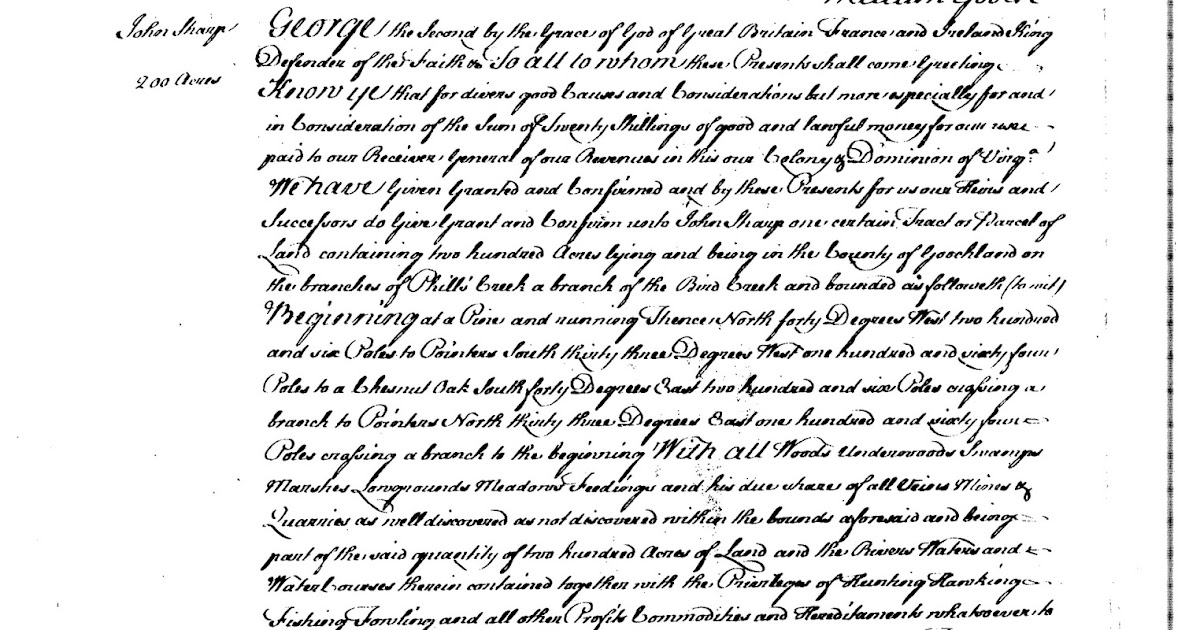 John Sharp
200 Acres
George the Second by the Grace of God of Great Britain France and Ireland King
Defender of the Faith &c To all to whom these Presents shall come Greeting
Know ye that for divers good Causes and Considerations but more especially for and
in Consideration of the Sum of Twenty Shillings of good and lawful money for our use
paid to our Receiver General of our Revenues in this our Colony & Dominion of Virg.a
We have Given Granted and Confirmed and by these Presents for us our Heirs and
Successors do Give Grant and Confirm unto John Sharp one certain Tract or Parcel of
Land containing two hundred Acres lying and being in the County of Goochland on
the branches of Phill's Creek a branch of the Bird Creek and bounded as followeth (to wit)
Beginning at a Pine and running Thence North forty Degrees West two hundred
and six Poles to Pointers South thirty three Degrees West one hundred and sixty four
Poles to a Chesnut Oak South forty Degrees East two hundred and six Poles crossing a
branch to Pointers North thirty three Degrees East one hundred and sixty four
Poles crossing a branch to the beginning With all Woods Underwoods Swamps
Marshes Lowgrounds Meadows Feedings and his due share of all Veins Mines &
Quarries as well discovered as not discovered within the bounds aforesaid and being
part of the said quantity of two hundred Acres of Land and the Rivers Waters and
Water Courses therein contained together with the Privileges of Hunting Hawking
Fishing Fowling and all other Profits Commodities and Hereditaments whatsoever to